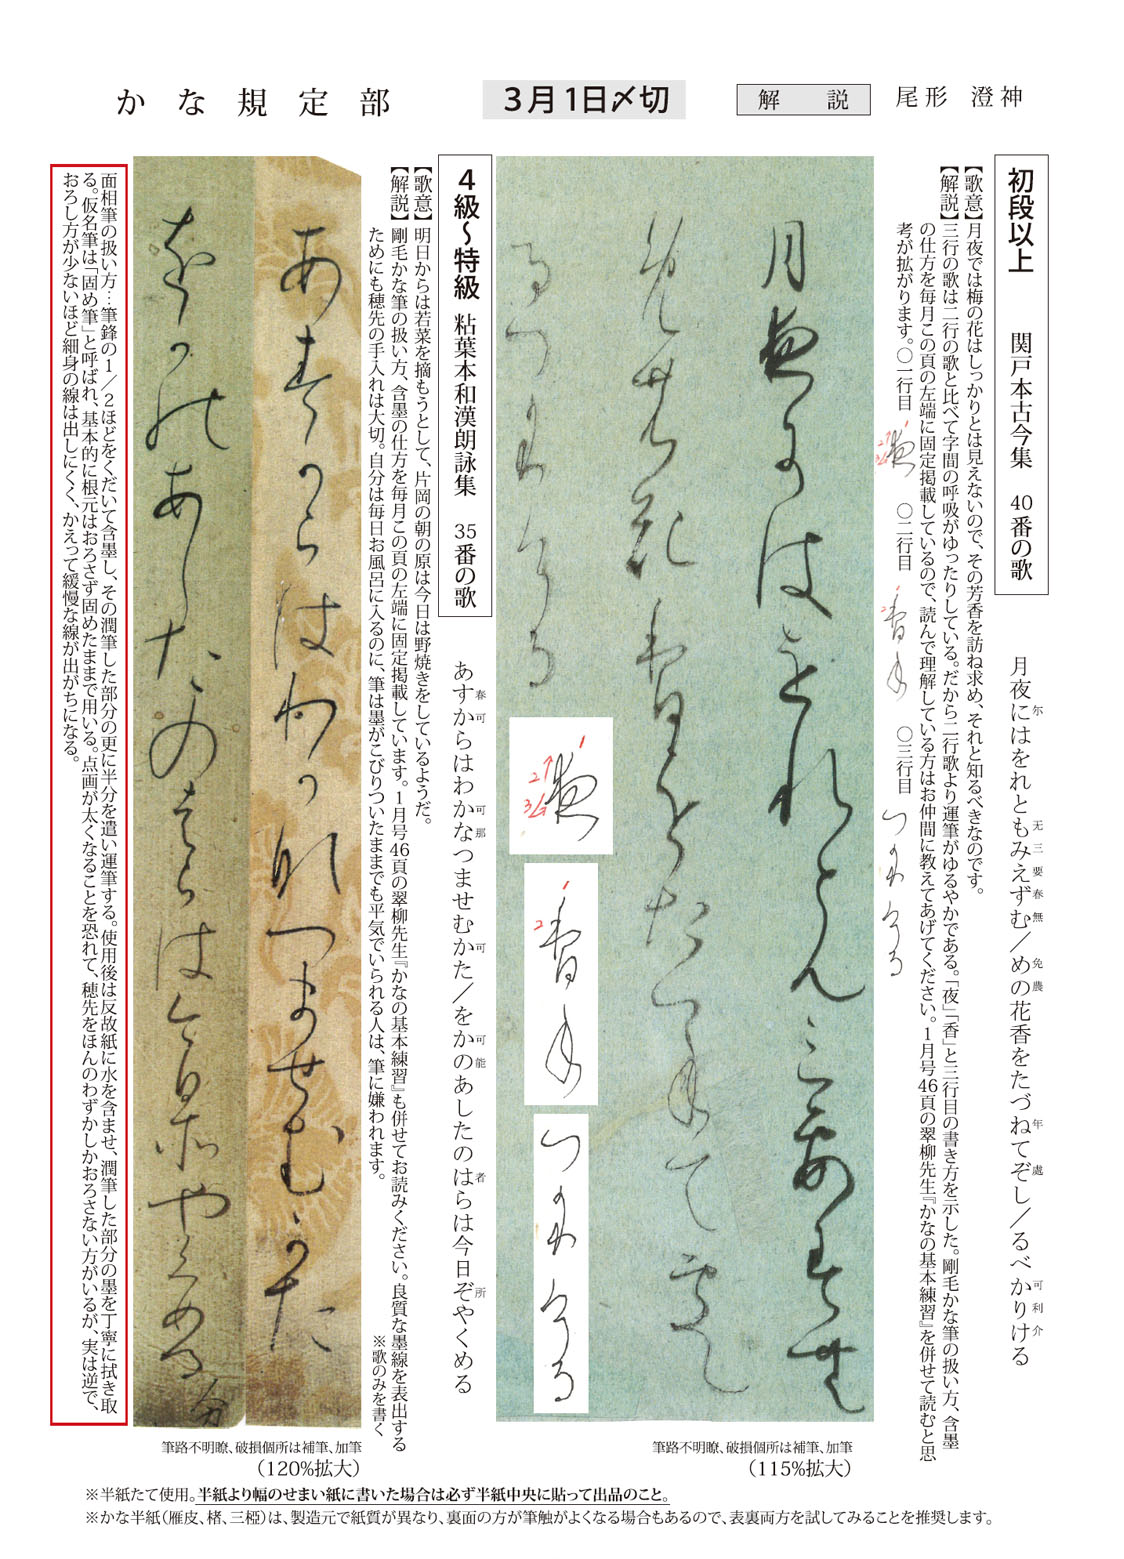 かな規定部
3月1日〆切
解説
尾形 澄神
初段以上 関戸本古今集 40番の歌
月夜にはをれともみえずむ／めの花香をたづねてぞし／るべかりける
尓 无三要春無 免農 年 處 可利介
【歌意】月夜では梅の花はしっかりとは見えないので、その芳香を訪ね求め、それと知るべきなのです。
【解説】三行の歌は二行の歌と比べて字間の呼吸がゆったりしている。だから二行歌より運筆がゆるやかである。「夜」「香」と三行目の書き方を示した。剛毛かな筆の扱い方、含墨
の仕方を毎月この頁の左端に固定掲載しているので、読んで理解している方はお仲間に教えてあげてください。1月号46頁の翠柳先生『かなの基本練習』を併せて読むと思
考が拡がります。○一行目 ○二行目 ○三行目
筆路不明瞭、破損個所は補筆、加筆
（115%拡大）
4級～特級 粘葉本和漢朗詠集 35番の歌
あすからはわかなつませむかた／をかのあしたのはらは今日ぞやくめる
春可 可那 可 可能 者 所
【歌意】明日からは若菜を摘もうとして、片岡の朝の原は今日は野焼きをしているようだ。
【解説】剛毛かな筆の扱い方、含墨の仕方を毎月この頁の左端に固定掲載しています。1月号46頁の翠柳先生『かなの基本練習』も併せてお読みください。良質な墨線を表出する
ためにも穂先の手入れは大切。自分は毎日お風呂に入るのに、筆は墨がこびりついたままでも平気でいられる人は、筆に嫌われます。
※歌のみを書く
筆路不明瞭、破損個所は補筆、加筆
（120%拡大）
面相筆の扱い方…筆鋒の1／2ほどをくだいて含墨し、その潤筆した部分の更に半分を遣い運筆する。使用後は反故紙に水を含ませ、潤筆した部分の墨を丁寧に拭き取
る。仮名筆は「固め筆」と呼ばれ、基本的に根元はおろさず固めたままで用いる。点画が太くなることを恐れて、穂先をほんのわずかしかおろさない方がいるが、実は逆で、
おろし方が少ないほど細身の線は出しにくく、かえって緩慢な線が出がちになる。
※半紙たて使用。半紙より幅のせまい紙に書いた場合は必ず半紙中央に貼って出品のこと。
※かな半紙(雁皮、楮、三椏)は、製造元で紙質が異なり、裏面の方が筆触がよくなる場合もあるので、表裏両方を試してみることを推奨します。